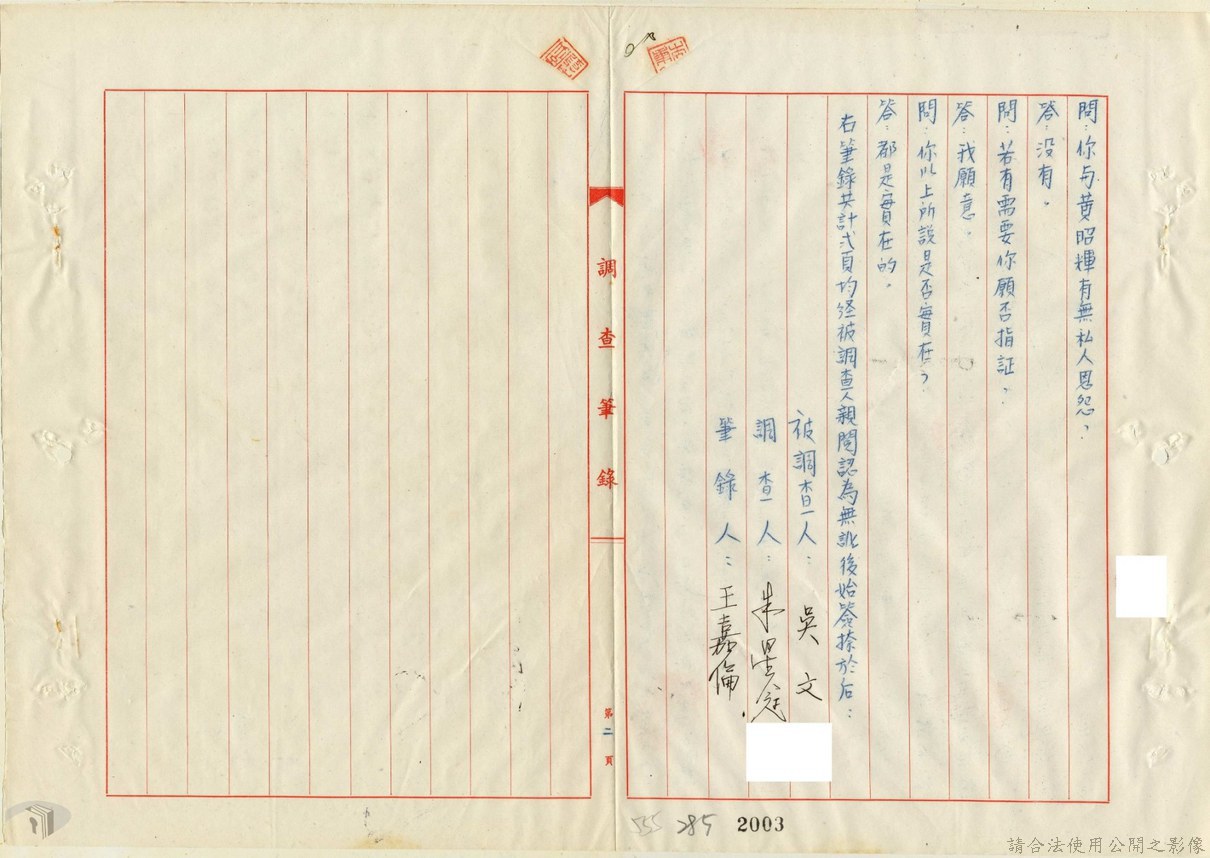 問：你与黃昭輝有無私人恩怨？
答：没有。
問：若有需要你願否指証？
答：我願意。
問：你以上所說是否實在？
答：都是實在的。
右筆錄共計弍頁均經被調查人親閱認為無訛後始簽捺於后：
被調查人：吳文
調查人：朱
筆錄人：王嘉倫
調查筆錄
第二頁
555 285 2003
請合法使用公開之影像